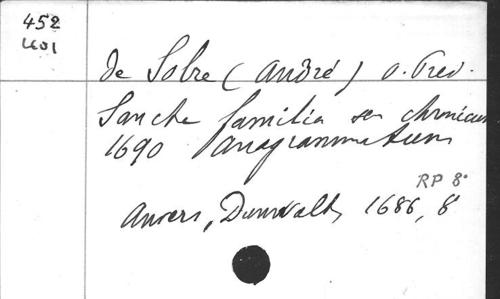 452
de Solre (André) o. Pred.
Sancta familia seu chronicum
1690 Anagrammaticum
RP 8°
Anvers, Dunwalt, 1686, 8°